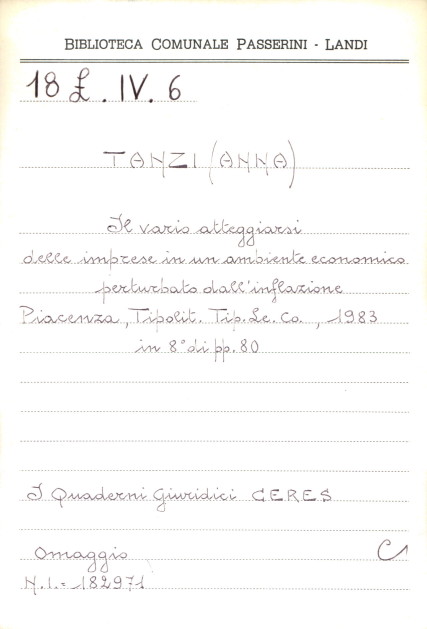 BIBLIOTECA COMUNALE PASSERINI - LANDI
18 £. IV. 6
TANZI (ANNA)
Il vario atteggiarsi
delle imprese in un ambiente economico
perturbato dall'inflazione
Piacenza, Tipolit. Tip. Le. Co., 1983
in 8° di pp. 80
I Quaderni Giuridici CERES
Omaggio C1
N.I.= 182971